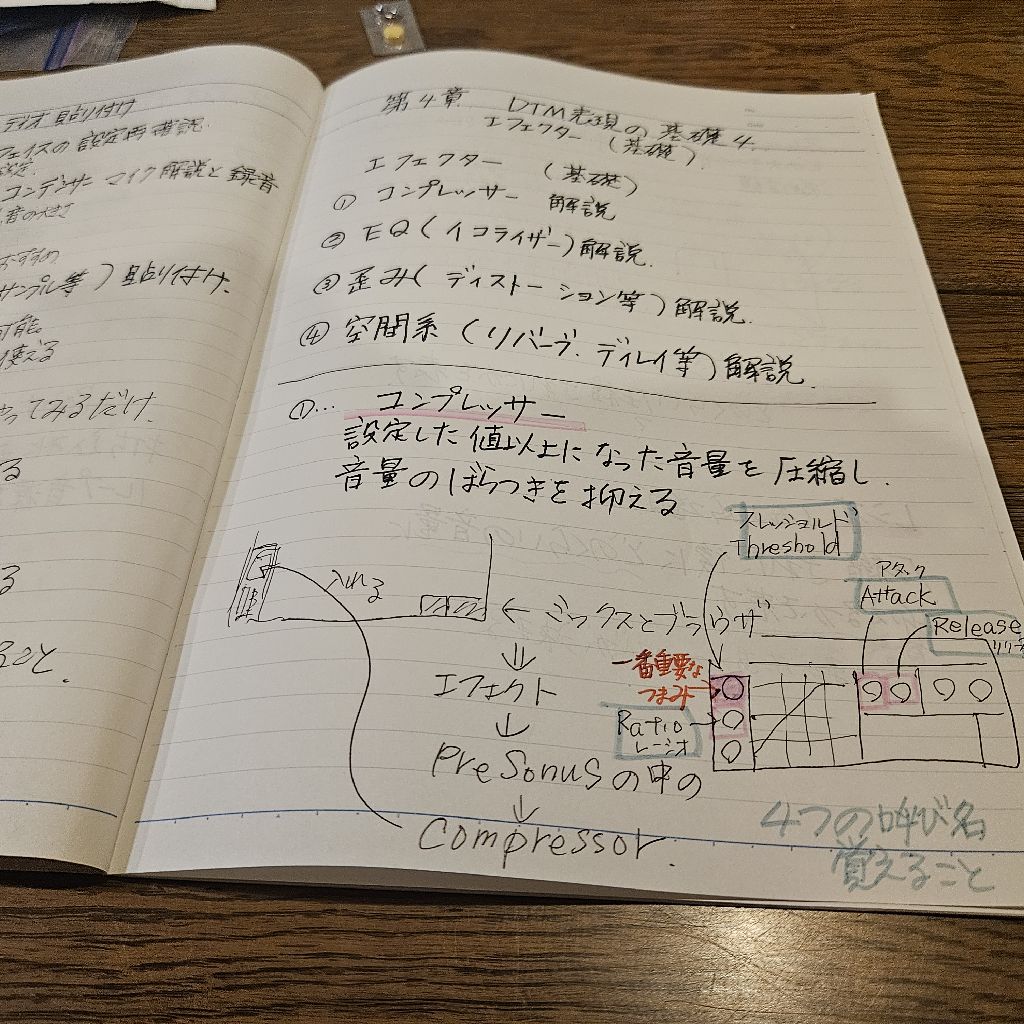 ディオ貼り付け
フェイスの設定再確認
設定
コンデンサーマイク解説と録音
音の大きさ
おすすめ
サンプル等）貼り付け.
可能
使える
やってみるだけ.
る
る
ること.
第4章 DTM表現の基礎4.
エフェクター（基礎）.
エフェクター （基礎）
① コンプレッサー 解説
② EQ（イコライザー）解説.
③ 歪み（ディストーション等）解説.
④ 空間系（リバーブ.ディレイ等）解説.
①… コンプレッサー
設定した値以上になった音量を圧縮し.
音量のばらつきを抑える
スレッショルド
Threshold
アタック
Attack
Release
リリース
入れる
← ミックスとブラウザ
⇓
エフェクト
↓
PreSonusの中の
↓
Compressor.
一番重要な
つまみ→
Ratio→
レーシオ
4つの呼び名
覚えること